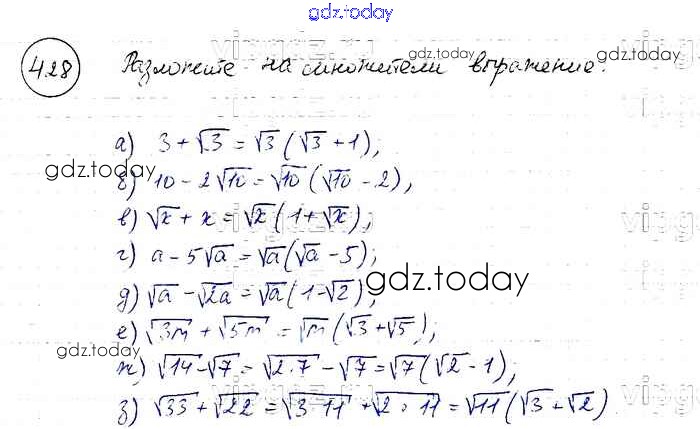 gdz.today
428 Разложите на множители выражение:
gdz.today
gdz.today
а) 3 + √3 = √3 (√3 + 1);
gdz.today
б) 10 - 2√10 = √10 (√10 - 2);
в) √x + x = √x (1 + √x);
г) a - 5√a = √a (√a - 5);
gdz.today
д) √a - √2a = √a (1 - √2);
е) √3m + √5m = √m (√3 + √5);
gdz.today
ж) √14 - √7 = √2·7 - √7 = √7 (√2 - 1);
gdz.today
з) √33 + √22 = √3·11 + √2·11 = √11 (√3 + √2)